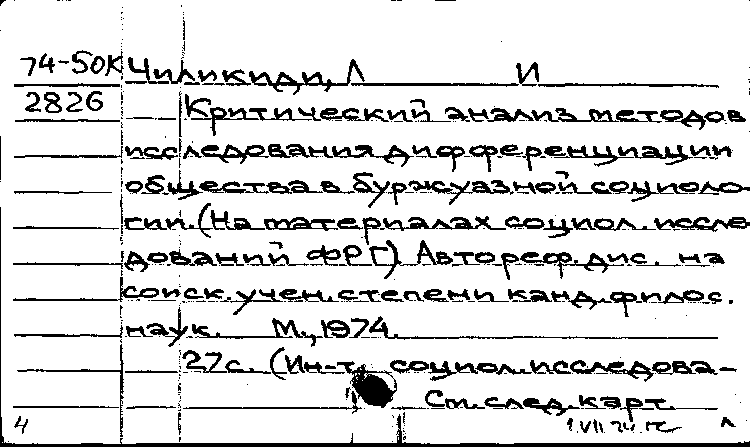 74-50К Чиликиди, Л И
2826 Критический анализ методов
исследования дифференциации
общества в буржуазной социоло-
гии. (На материалах социол. иссле-
дований ФРГ). Автореф. дис. на
соиск. учен. степени канд. филос.
наук. М., 1974.
27с. (Ин-т социол. исследова-
См. след. карт.
4